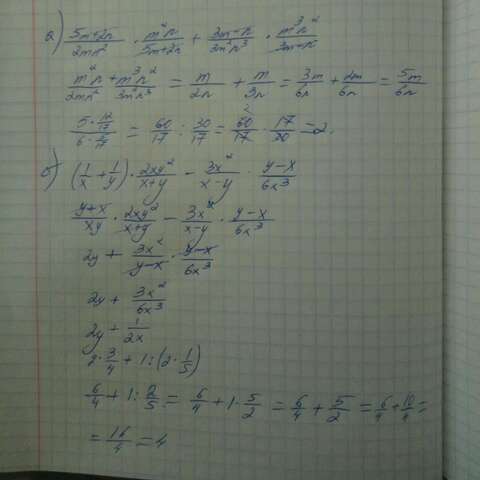 а) (5m+2n)/(2mn²) · (m²n)/(5m+2n) + (3m+n)/(3m²n³) · (m³n²)/(3m+n)
(m²n)/(2mn²) + (m³n²)/(3m²n³) = m/(2n) + m/(3n) = 3m/(6n) + 2m/(6n) = 5m/(6n)
= 60/17 : 30/17 = 60/17 · 17/30 = 2.
б) (1/x + 1/y) · (2xy²)/(x+y) − (3x²)/(x−y) · (y−x)/(6x³)
(y+x)/(xy) · (2xy²)/(x+y) − (3x²)/(x−y) · (y−x)/(6x³)
2y + (3x²)/(y−x) · (y−x)/(6x³)
2y + (3x²)/(6x³)
2y + 1/(2x)
2 · 3/4 + 1 : (2 · 1/5)
6/4 + 1 : 2/5 = 6/4 + 1 · 5/2 = 6/4 + 5/2 = 6/4 + 10/4 =
= 16/4 = 4